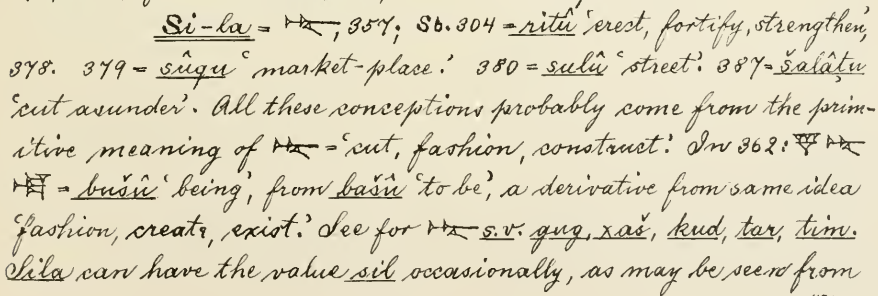 Si-la = 𒋻, 357; Sb. 304 = ritû ‘erest, fortify, strengthen’,
378. 379 = sûqu ‘market-place.’ 380 = sulû ‘street.’ 387 = šalâtu
‘cut asunder’. All these conceptions probably come from the prim-
itive meaning of 𒋻 = ‘cut, fashion, construct.’ In 362: 𒋻
= bušû ‘being’, from bašû ‘to be’, a derivative from same idea
‘fashion, create, exist.’ See for 𒋻 s.v. gug, xaš, kud, tar, tim.
Sila can have the value sil occasionally, as may be seen from